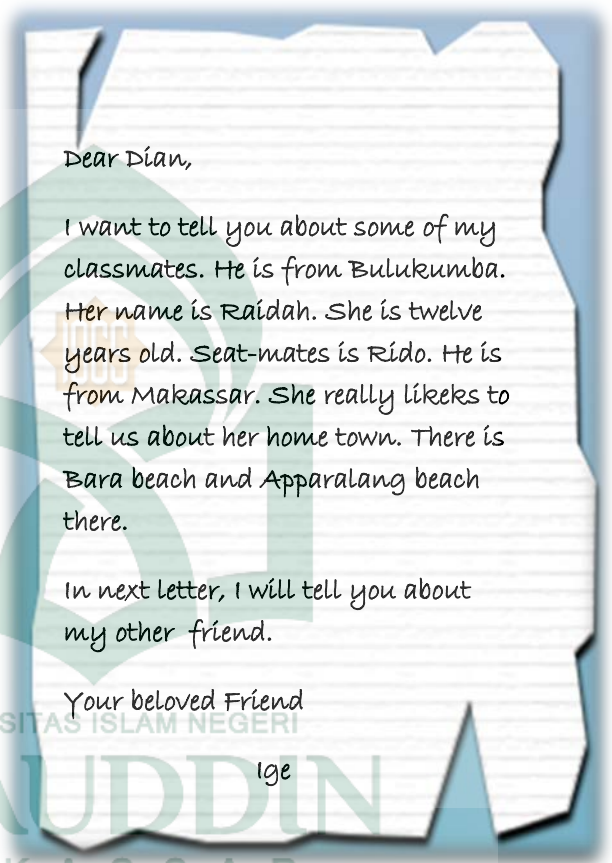 Dear Dian,
I want to tell you about some of my
classmates. He is from Bulukumba.
Her name is Raidah. She is twelve
years old. Seat-mates is Rido. He is
from Makassar. She really likeks to
tell us about her home town. There is
Bara beach and Apparalang beach
there.
In next letter, I will tell you about
my other friend.
Your beloved Friend
SITAS ISLAM NEGERI
Ige
AUDDIN